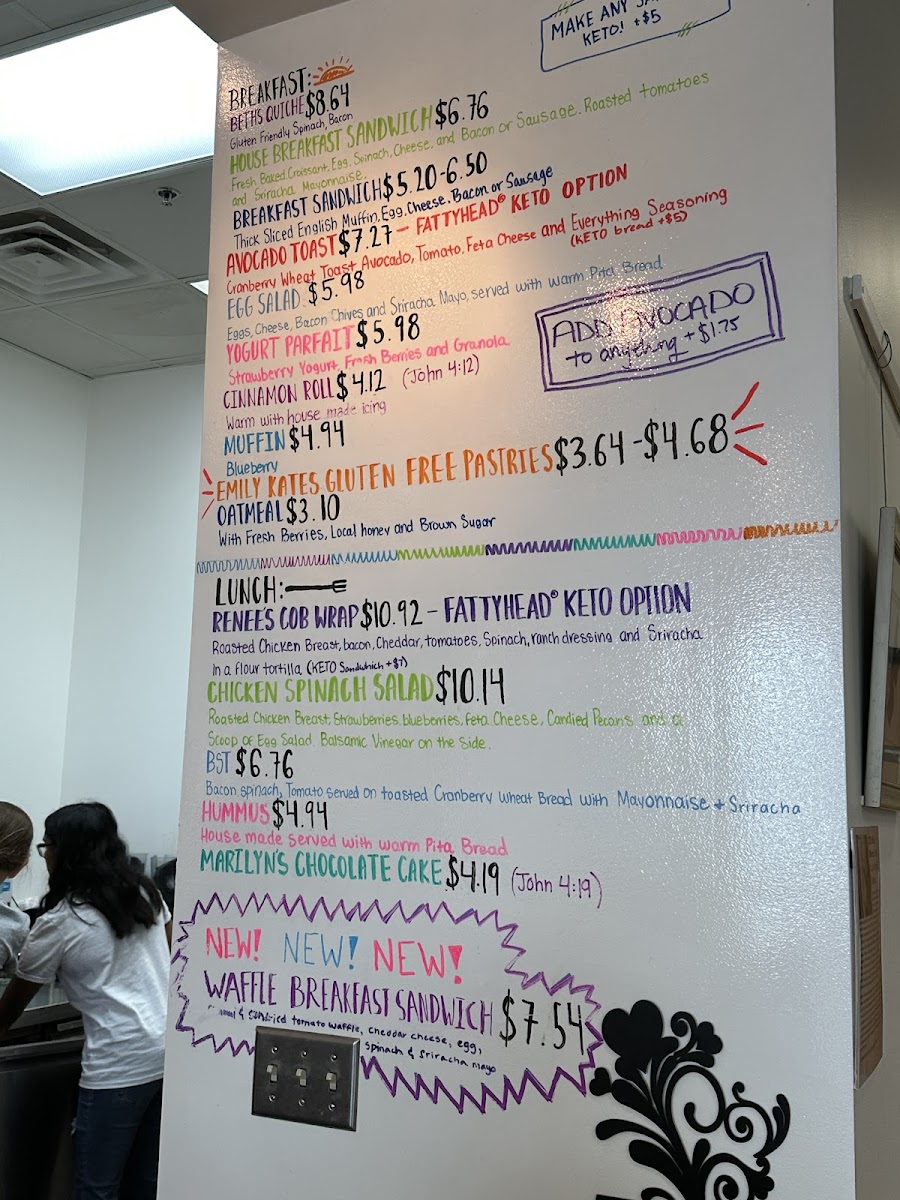 MAKE ANY
KETO! +$5
BREAKFAST:
BETH'S QUICHE $8.64
Gluten Friendly Spinach, Bacon
HOUSE BREAKFAST SANDWICH $6.76
Fresh Baked Croissant, Egg, Spinach, Cheese, and Bacon or Sausage. Roasted tomatoes
and Sriracha Mayonnaise.
BREAKFAST SANDWICH $5.20-6.50
Thick Sliced English Muffin, Egg, Cheese, Bacon or Sausage
AVOCADO TOAST $7.27 - FATTYHEAD® KETO OPTION
Cranberry Wheat Toast Avocado, Tomato, Feta Cheese and Everything Seasoning
(KETO bread +$5)
EGG SALAD $5.98
Eggs, Cheese, Bacon Chives and Sriracha Mayo, served with warm Pita Bread
YOGURT PARFAIT $5.98
Strawberry Yogurt, Fresh Berries and Granola
ADD AVOCADO
to anything +$1.75
CINNAMON ROLL $4.12 (John 4:12)
Warm with house made icing
MUFFIN $4.94
Blueberry
EMILY KATES GLUTEN FREE PASTRIES $3.64-$4.68
OATMEAL $3.10
With Fresh Berries, Local honey and Brown Sugar
LUNCH:
RENEE'S COB WRAP $10.92 - FATTYHEAD® KETO OPTION
Roasted Chicken Breast, bacon, Cheddar, tomatoes, Spinach, ranch dressing and Sriracha
in a flour tortilla (KETO Sandwhich +$1)
CHICKEN SPINACH SALAD $10.14
Roasted Chicken Breast, Strawberries, blueberries, Feta Cheese, Candied Pecans and a
Scoop of Egg Salad. Balsamic Vinegar on the side.
BST $6.76
Bacon, spinach, Tomato served on toasted Cranberry Wheat Bread with Mayonnaise + Sriracha
HUMMUS $4.94
House made served with warm Pita Bread
MARILYN'S CHOCOLATE CAKE $4.19 (John 4:19)
NEW! NEW! NEW!
WAFFLE BREAKFAST SANDWICH $7.54
tomato waffle, cheddar cheese, egg,
spinach & sriracha mayo